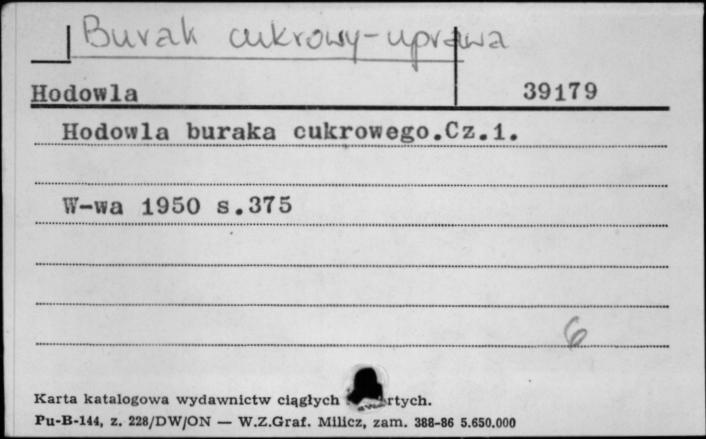 Burak cukrowy-uprawa
Hodowla 39179
Hodowla buraka cukrowego.Cz.1.
W-wa 1950 s.375
6
Karta katalogowa wydawnictw ciągłych
Pu-B-144, z. 228/DW/ON — W.Z.Graf. Milicz, zam. 388-86 5.650.000